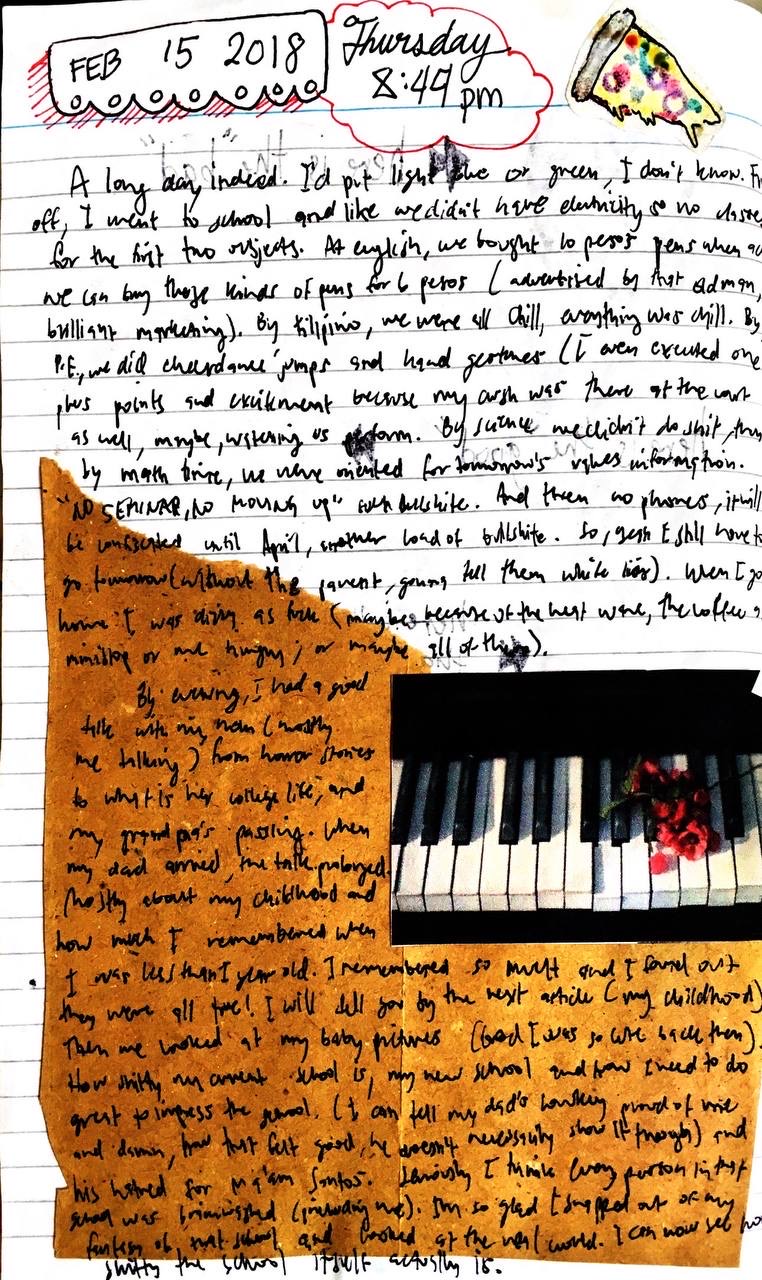 FEB 15 2018
Thursday
8:49
pm
A long day indeed. I'd put light blue or green, I don't know.
off, I went to school and like we didn't have electricity so no
for the first two subjects. At english, we bought 10 pesos pens when
we can buy those kinds of pens for 6 pesos (advertised by that old man,
brilliant marketing). By Filipino, we were all chill, everything was chill. By
P.E, we did cheerdance jumps and hand gestures (I even executed one
plus points and excitement because my crush was there at the court
as well, maybe, watching us perform. By science we didn't do shit,
by math time, we were oriented for tomorrow's values information.
"NO SEMINAR, NO MOVING UP" such bullshite. And then no phones, it will
be confiscated until April, another load of bullshite. So, yeah I still have to
go tomorrow (without the parent, gonna tell them white lies). When I
home I was dizzy as fuck (maybe because of the heat wave, the coffee
or me hungry; or maybe all of them).
By evening, I had a good
talk with my mom (mostly
me talking) from horror stories
to what is her college life, and
my grandpa's passing. When
my dad arrived, the talk prolonged.
Mostly about my childhood and
how much I remembered when
I was less than 1 year old. I remembered so much and I found out
they were all true! I will tell you by the next article (my childhood)
Then we looked at my baby pictures (God I was so cute back then).
How shitty my current school is, my new school and how I need to do
great to impress the school. (I can tell my dad's proud of me
and damn, how that felt good, he doesn't necessarily show it though) and
his hatred for Ma'am Santos. Seriously I think every person in that
school was brainwashed (including me). I'm so glad I snapped out of my
fantasy of that school and looked at the real world. I can now see how
shitty the school itself actually is.